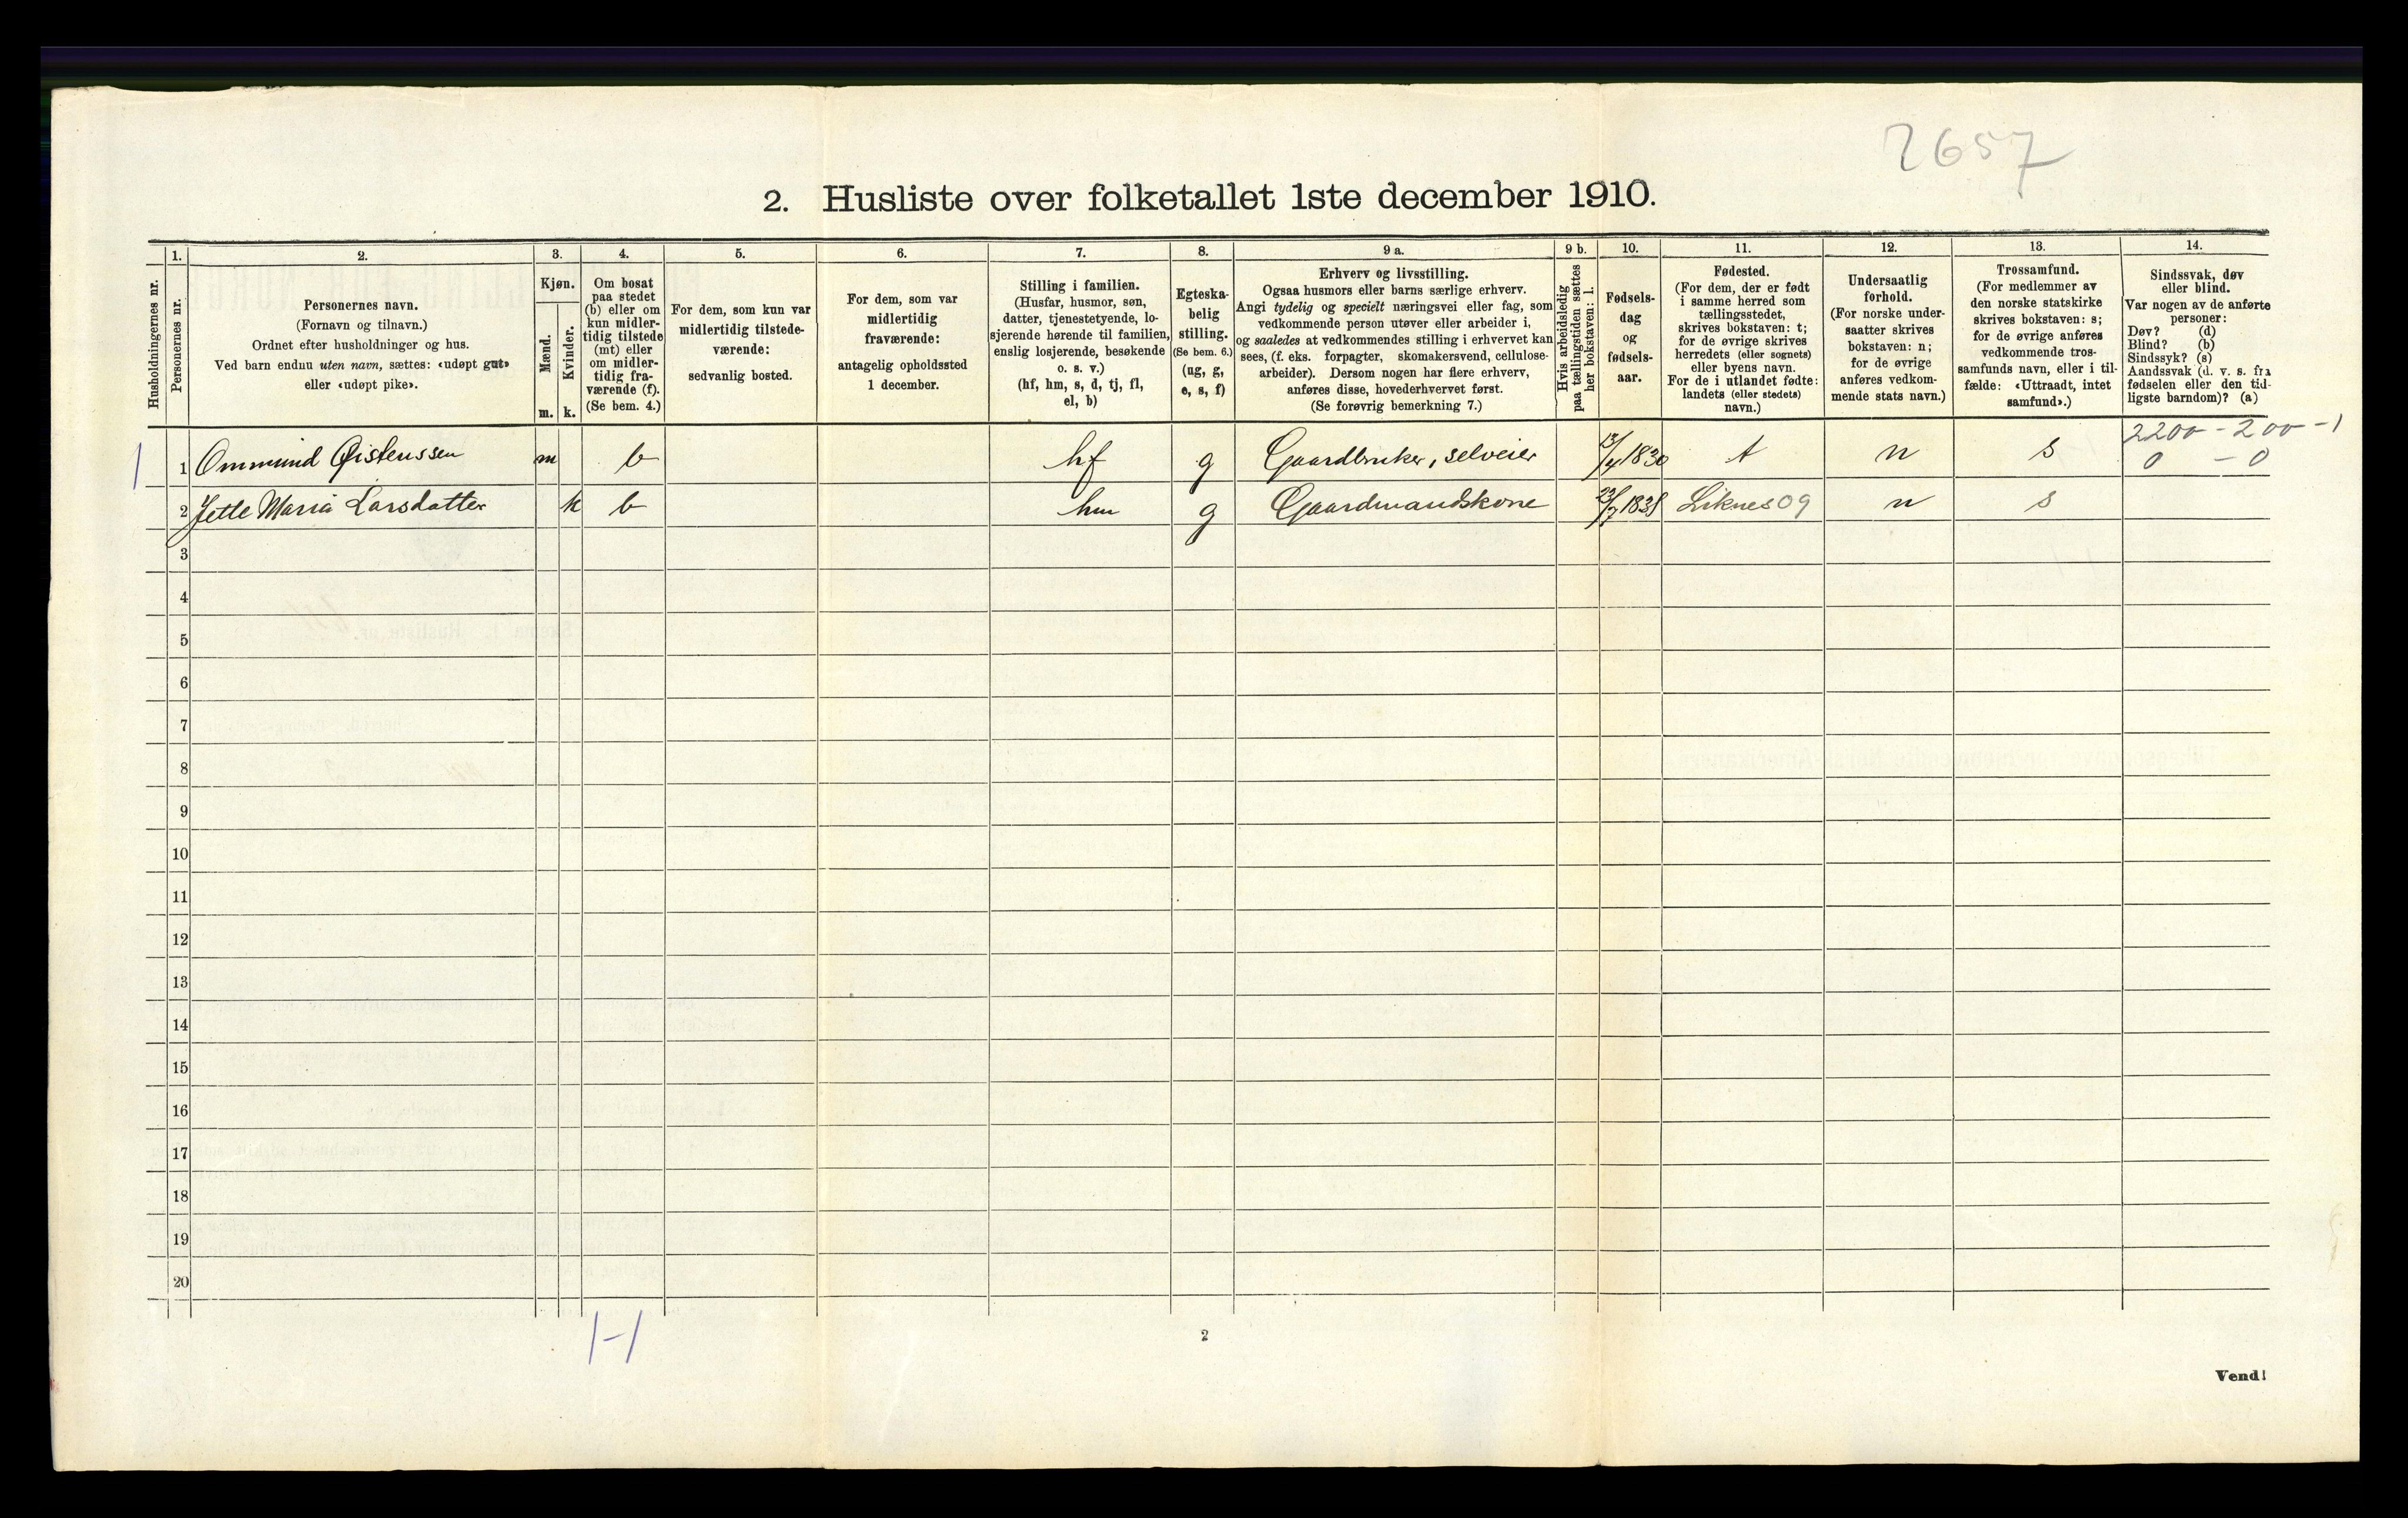 2657
2. Husliste over folketallet 1ste december 1910.
1. 2. 3. 4. 5. 6. 7. 8. 9 a. 9 b. 10. 11. 12. 13. 14.
Husholdningernes nr.
Personernes nr.
Personernes navn.
(Fornavn og tilnavn.)
Ordnet efter husholdninger og hus.
Ved barn endnu uten navn, sættes: «udøpt gut»
eller «udøpt pike».
Kjøn.
Mænd.
m.
Kvinder.
k.
Om bosat
paa stedet
(b) eller om
kun midler-
tidig tilstede
(mt) eller
om midler-
tidig fra-
værende (f).
(Se bem. 4.)
For dem, som kun var
midlertidig tilstede-
værende:
sedvanlig bosted.
For dem, som var
midlertidig
fraværende:
antagelig opholdssted
1 december.
Stilling i familien.
(Husfar, husmor, søn,
datter, tjenestetyende, lo-
sjerende hørende til familien,
enslig losjerende, besøkende
o. s. v.)
(hf, hm, s, d, tj, fl,
el, b)
Egteska-
belig
stilling.
(Se bem. 6.)
(ug, g,
e, s, f)
Erhverv og livsstilling.
Ogsaa husmors eller barns særlige erhverv.
Angi tydelig og specielt næringsvei eller fag, som
vedkommende person utøver eller arbeider i,
og saaledes at vedkommendes stilling i erhvervet kan
sees, (f. eks. forpagter, skomakersvend, cellulose-
arbeider). Dersom nogen har flere erhverv,
anføres disse, hovederhvervet først.
(Se forøvrig bemerkning 7.)
Hvis arbeidsledig
paa tællingstiden sættes
her bokstaven: l.
Fødsels-
dag
og
fødsels-
aar.
Fødested.
(For dem, der er født
i samme herred som
tællingsstedet,
skrives bokstaven: t;
for de øvrige skrives
herredets (eller sognets)
eller byens navn.
For de i utlandet fødte:
landets (eller stedets)
navn.)
Undersaatlig
forhold.
(For norske under-
saatter skrives
bokstaven: n;
for de øvrige
anføres vedkom-
mende stats navn.)
Trossamfund.
(For medlemmer av
den norske statskirke
skrives bokstaven: s;
for de øvrige anføres
vedkommende tros-
samfunds navn, eller i til-
fælde: «Uttraadt, intet
samfund».)
Sindssvak, døv
eller blind.
Var nogen av de anførte
personer:
Døv? (d)
Blind? (b)
Sindssyk? (s)
Aandssvak (d. v. s. fra
fødselen eller den tid-
ligste barndom)? (a)
2200 - 200 - 1
1 1 Ommund Øistenssen m b hf g Gaardbruker, selveier 13/4 1830 t n s 0 - 0
2 Jette Maria Larsdatter k b hm g Gaardmandskone 23/7 1838 Liknes 09 n s
3
4
5
6
7
8
9
10
11
12
13
14
15
16
17
18
19
20
1-1
2
Vend!